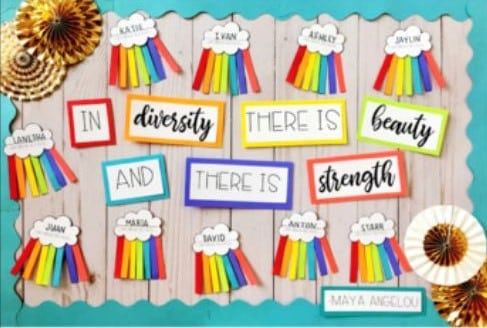 KATIE
IVAN
ASHLEY
JAYLIN
IN diversity THERE IS beauty
AND THERE IS strength
JUAN
MARIA
DAVID
ANTON
STARR
MAYA ANGELOU